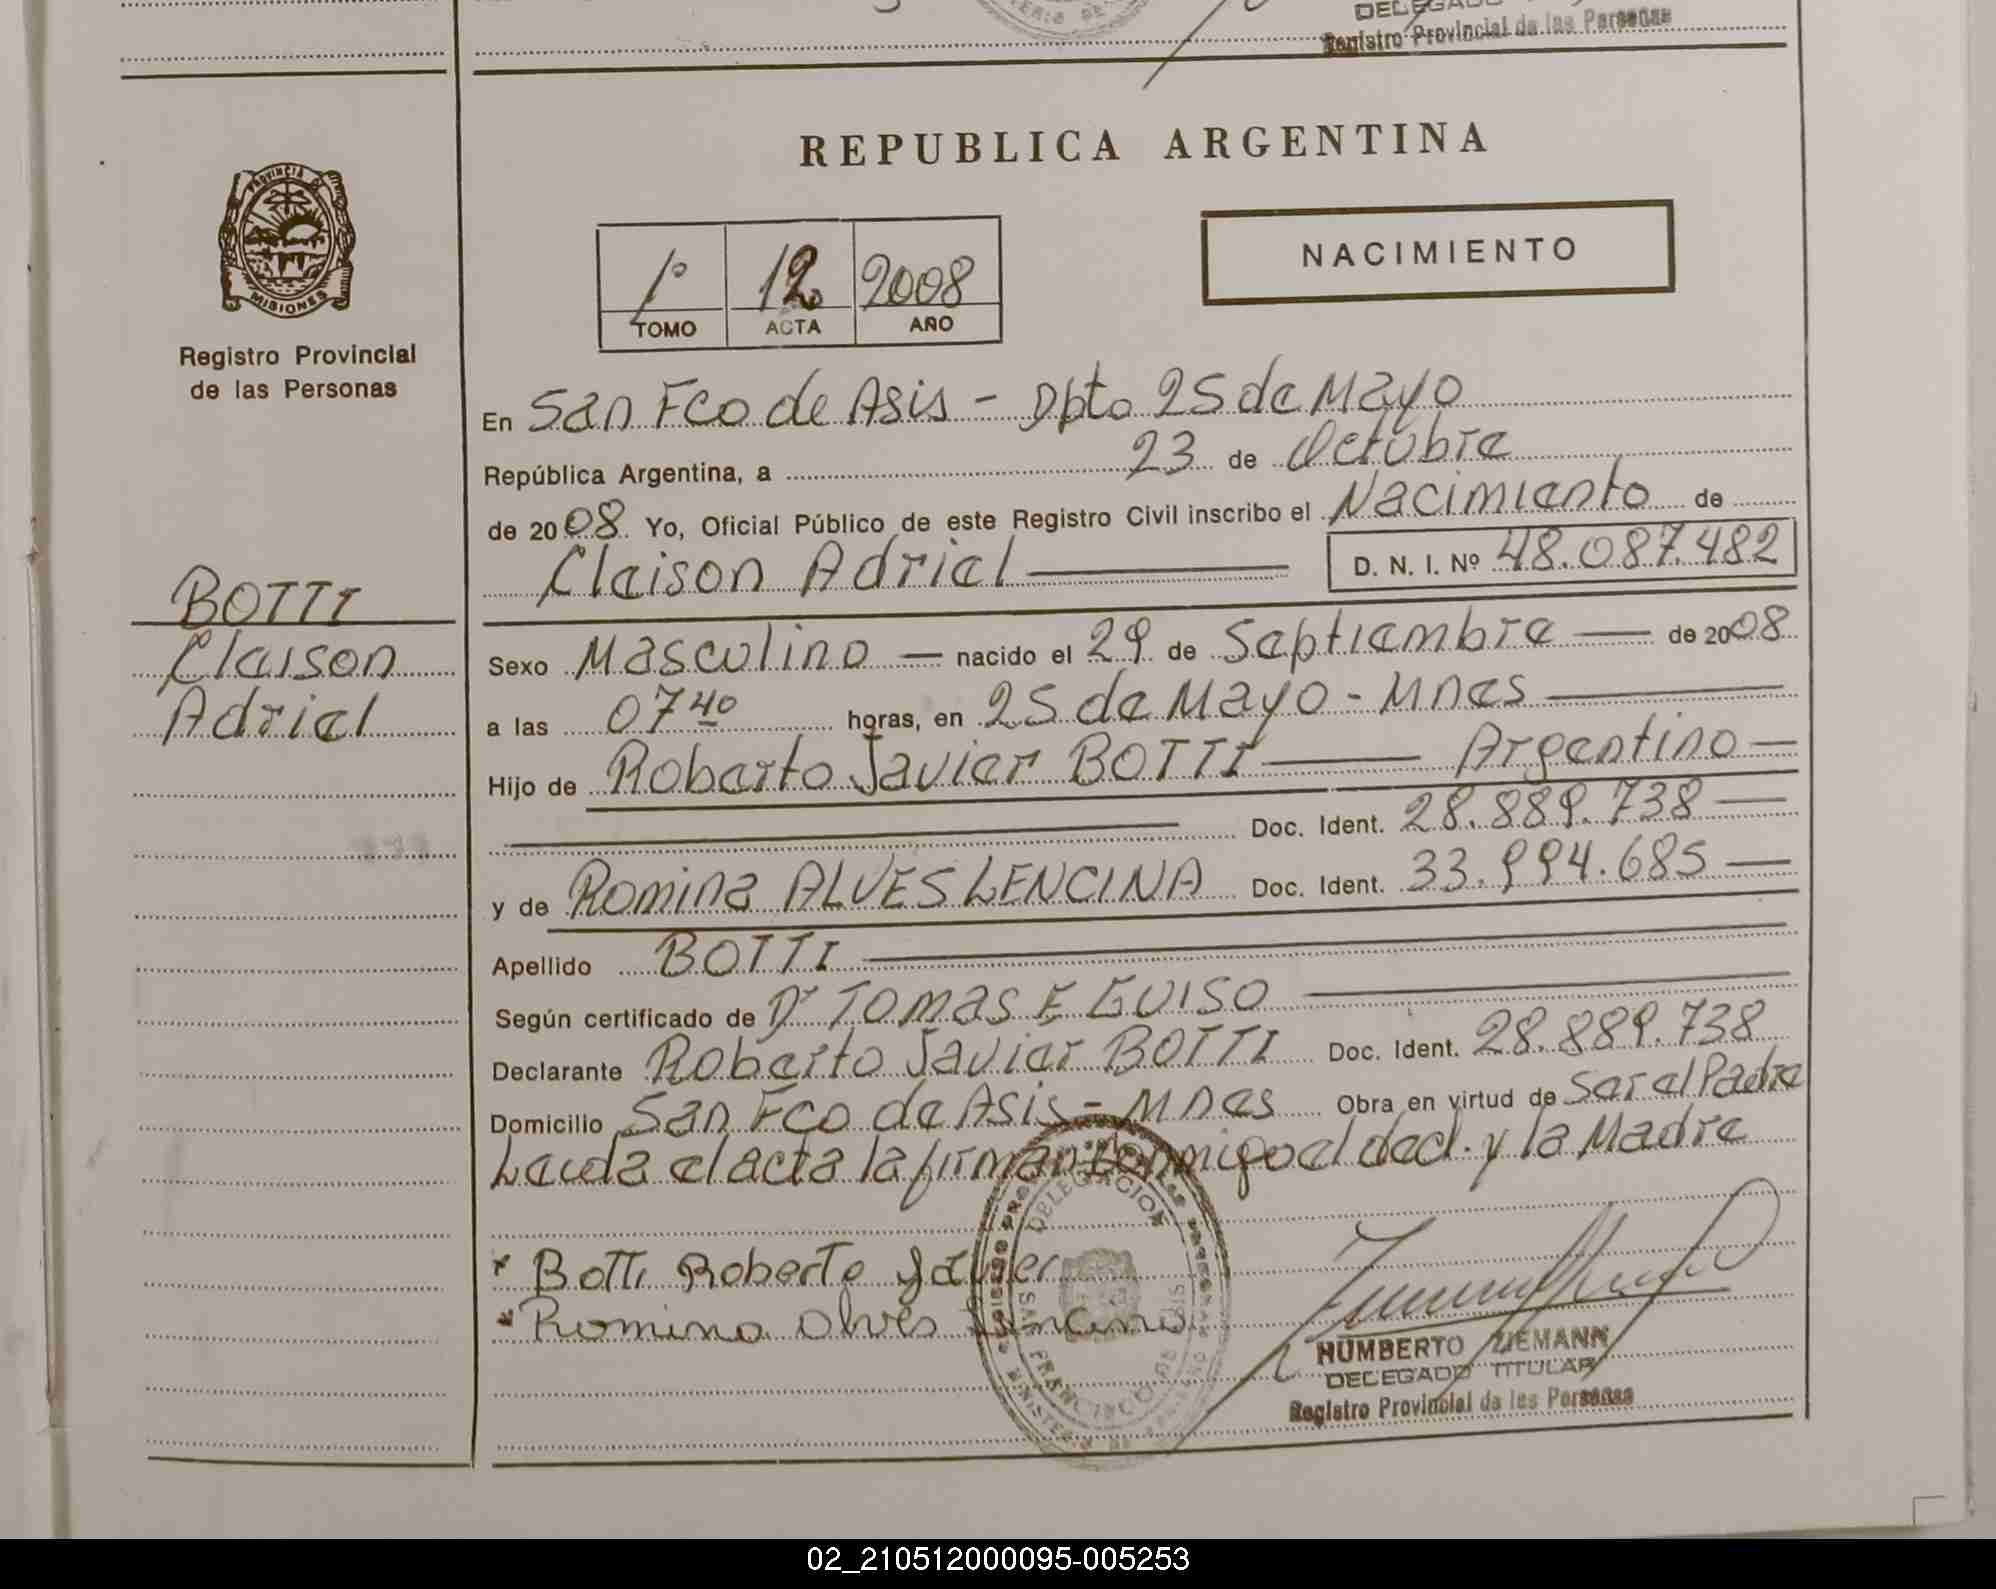 DELEGADO
Registro Provincial de las Personas
REPUBLICA ARGENTINA
PROVINCIA DE
MISIONES
Registro Provincial
de las Personas
1º 12 2008
TOMO ACTA AÑO
NACIMIENTO
En San Fco de Asis - Dpto 25 de Mayo
República Argentina, a 23 de Octubre
de 2008 Yo, Oficial Público de este Registro Civil inscribo el Nacimiento de
Claison Adriel D. N. I. Nº 48.087.482
BOTTI
Claison
Adriel
Sexo Masculino — nacido el 29 de Septiembre — de 2008
a las 07 40 horas, en 25 de Mayo - Mnes
Hijo de Roberto Javier BOTTI — Argentino —
Doc. Ident. 28.889.738 —
y de Romina ALVES LENCINA Doc. Ident. 33.994.685 —
Apellido BOTTI
Según certificado de Dr TOMAS E GUISO
Declarante Roberto Javier BOTTI Doc. Ident. 28.889.738
Domicilio San Fco de Asis - Mnes Obra en virtud de Ser el Padre
Leida el acta la firman conmigo el decl. y la Madre
* Botti Roberto Javier
* Romina Alves Lencina
DELEGACION
SAN FRANCISCO DE ASIS
HUMBERTO ZIEMANN
DELEGADO TITULAR
Registro Provincial de las Personas
02_210512000095-005253